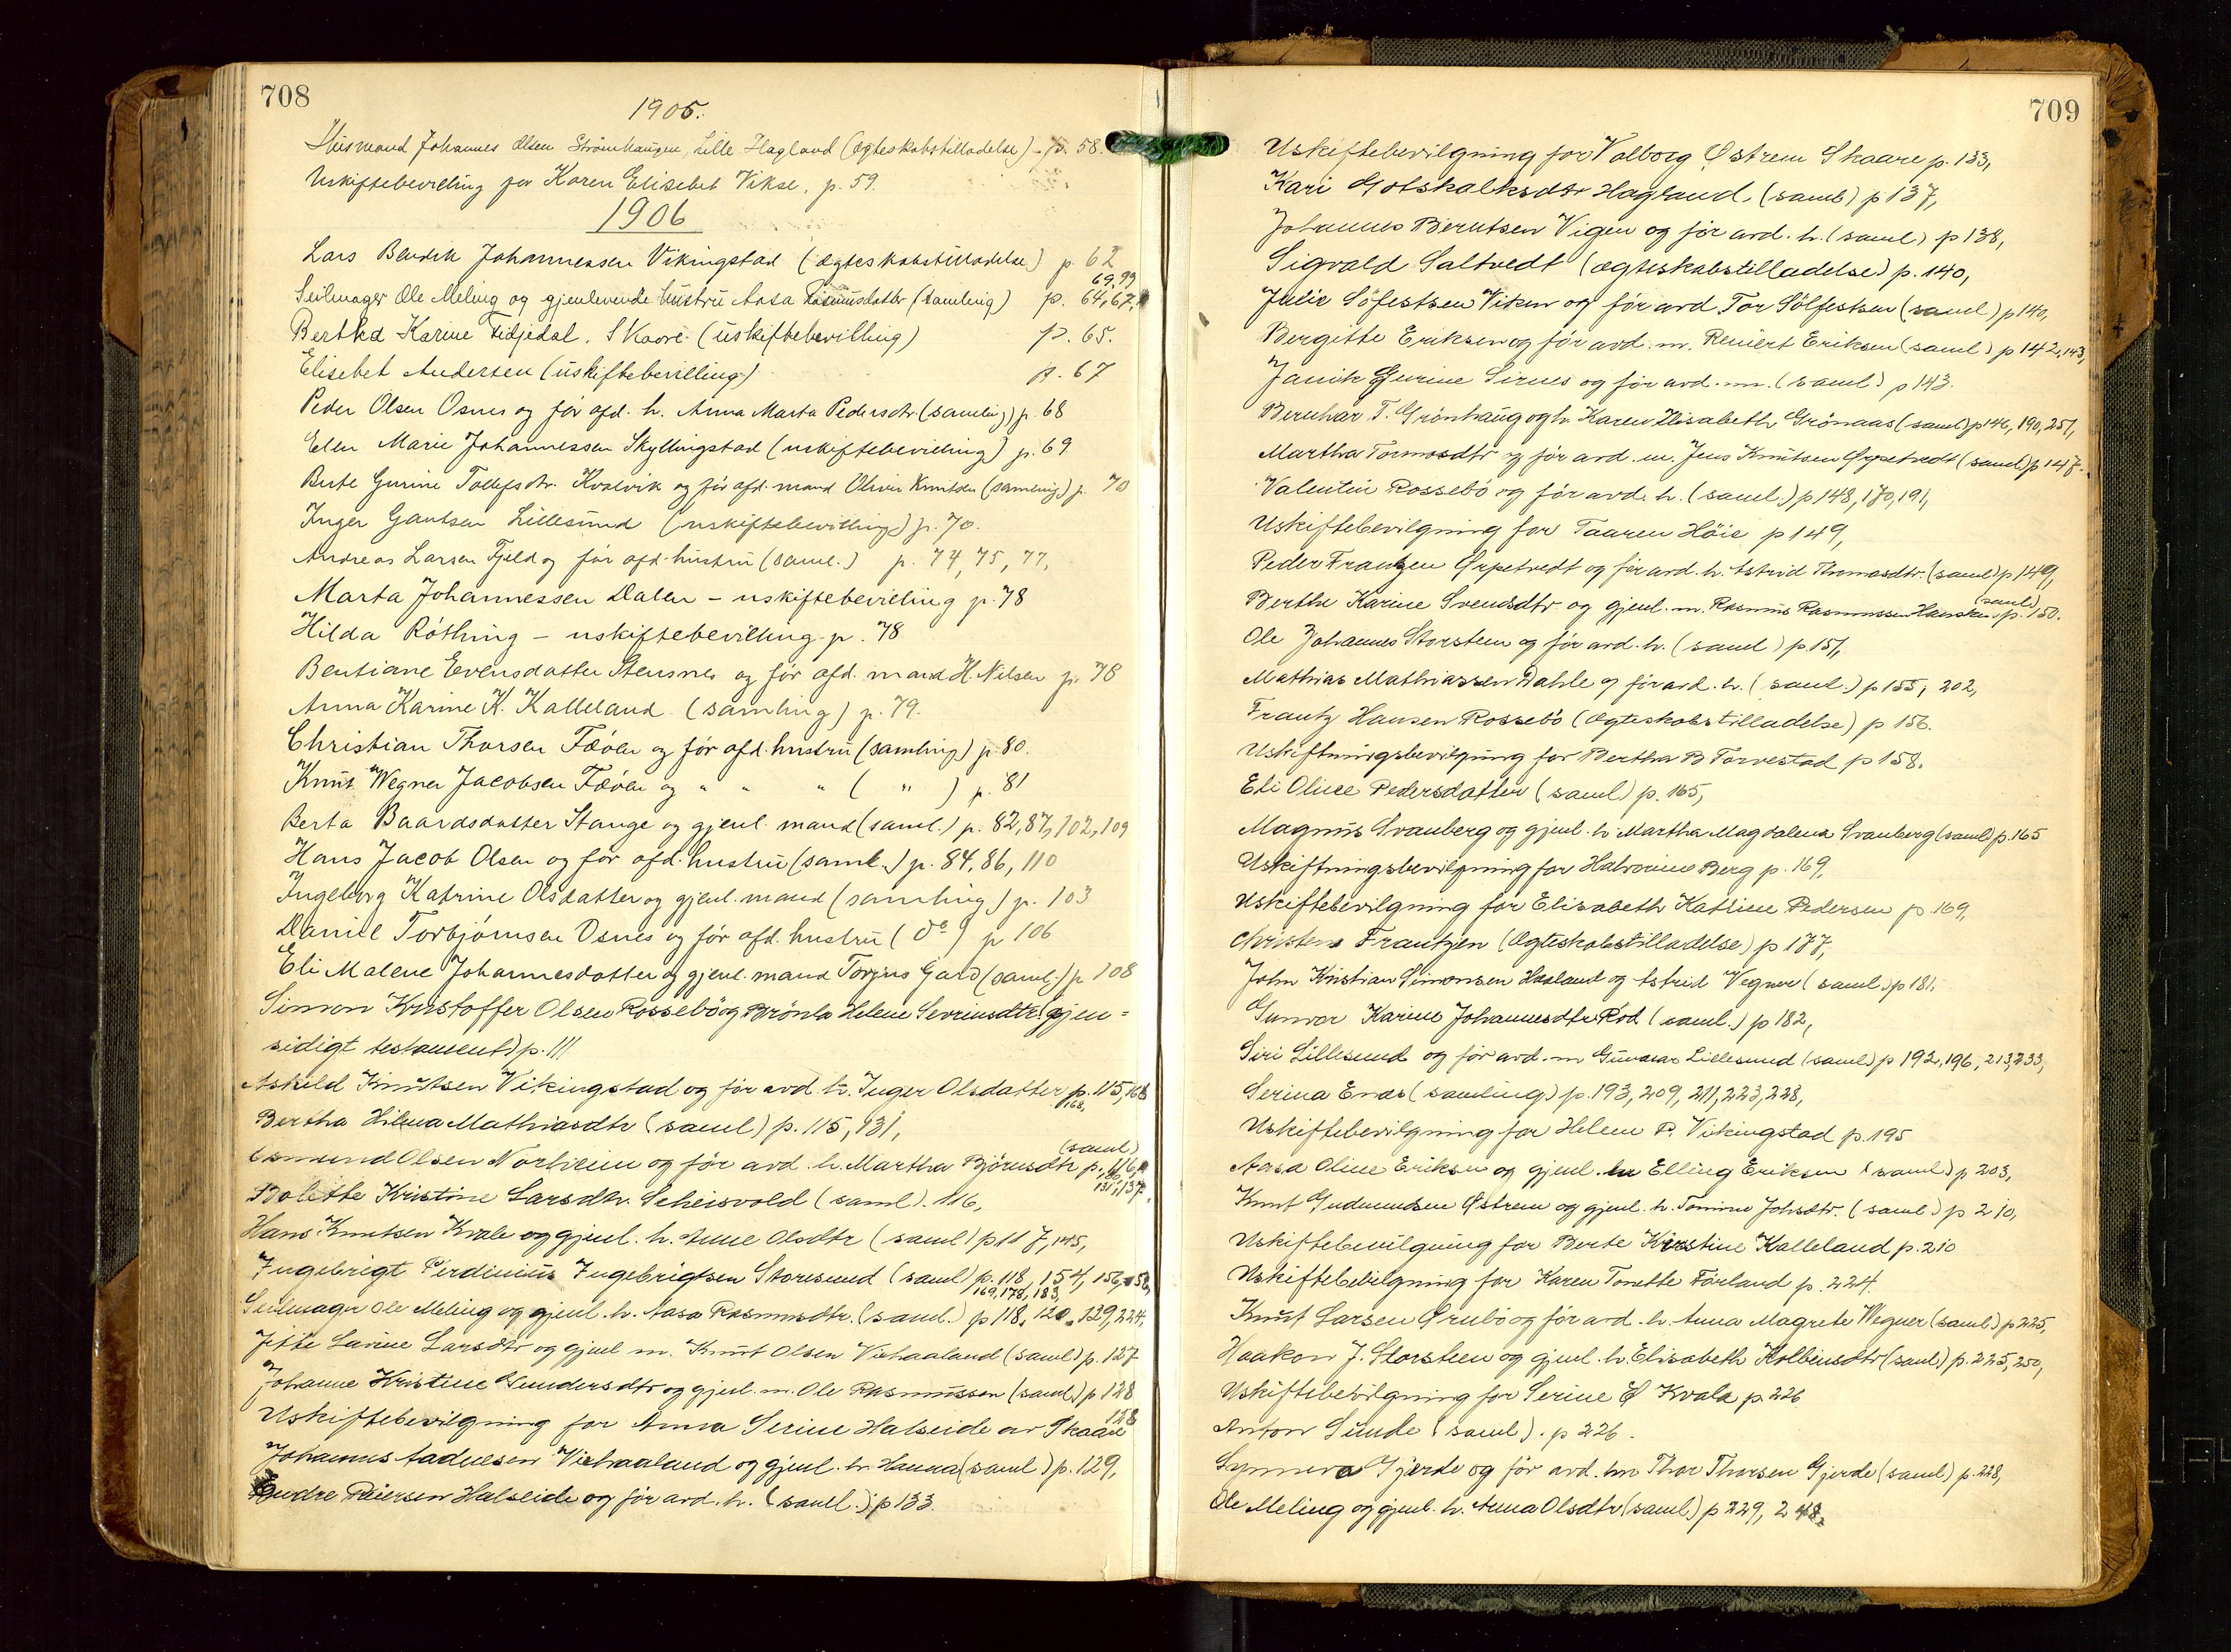 708
1905.
Husmand Johannes Olsen Strömhaugen, Lille Hagland (ægteskabstilladelse) - p. 58.
Uskiftebevilling for Karen Elisebet Vikse, p. 59.
1906
Lars Bendik Johannessen Vikingstad (ægteskabstilladelse) p. 62
69,99
Seilmager Ole Meling og gjenlevende hustru Aasa Rasmusdatter (samling) p. 64, 67,
Berthea Karine Fidjedal, Skaare (uskiftebevilling) p. 65.
Elisebet Andersen (uskiftebevilling) p. 67
Peder Olsen Osnes og før afd. h. Anna Marta Pedersdtr. (samling) p. 68
Ellen Marie Johannessen Skyllingstad (uskiftebevilling) p. 69
Berte Gurine Tollefsdtr. Kvalvik og før afd. mand Oliver Knutsen (samling) p. 70
Inger Gautsen Lillesund (uskiftebevilling) p. 70.
Andreas Larsen Fjeld og før afd. hustru (saml.) p. 74, 75, 77,
Marta Johannessen Dalen - uskiftebevilling p. 78
Hilda Röthing - uskiftebevilling p. 78
Bentiane Evensdatter Stensnes og før afd. mand H. Nilsen p. 78
Anna Karine K. Kalleland (samling) p. 79.
Christian Thorsen Fæöen og før afd. hustru (samling) p. 80.
Knut Wegner Jacobsen Fæöen og " " " ( " ) p. 81
Berta Baardsdatter Stange og gjenl. mand (saml.) p. 82, 87, 102, 109
Hans Jacob Olsen og før afd. hustru (saml.) p. 84, 86, 110
Ingeborg Katrine Olsdatter og gjenl. mand (samling) p. 103
Daniel Torbjörnsen Osnes og før afd. hustru (do) p 106
Eli Malene Johannesdatter og gjenl. mand Torjus Gard (saml.) p 108
Simon Kristoffer Olsen Rossebö og Brönla Helene Sevrinsdtr. (gjen=
sidigt testament) p. 111
Askild Knutsen Vikingstad og før avd. h. Inger Olsdatter p. 115, 168
168,
Bertha Hilma Mathiasdtr (saml) p. 115, 131,
(saml)
Osmund Olsen Norheim og før avd. h. Martha Björnsdtr p. 116,
131, 137.
Bolette Kristine Larsdtr. (saml). 116,
Hans Knutsen Kvale og gjenl. h. Anne Olsdtr (saml) p 117, 145,
Ingebrigt Ferdinius Ingebrigtsen Storesund (saml) p. 118, 154, 156, 158,
169, 178, 183,
Seilmager Ole Meling og gjenl. h. Aasa Rasmusdtr. (saml.) p 118, 120, 129, 224,
Jitte Larine Larsdtr og gjenl m. Knut Olsen Viehaaland (saml) p. 127
Johanne Kristine Gundersdtr og gjenl. m. Ole Rasmussen (saml.) p 128
128
Uskiftebevilgning for Anna Serine Halseide av Skaare
Johannes Aadnesen Viehaaland og gjenl. h. Hanna (saml) p. 129,
Endre Peiersen Halseide og før avd. h. (saml.) p 133.
709
Uskiftebevilgning for Valborg Østrem Skaare p. 133,
Kari Gotskalksdtr Hagland. (saml) p 137,
Johannes Berntsen Vigen og før avd. h. (saml) p 138,
Sigvald Saltvedt (ægteskabstilladelse) p. 140,
Julie Söfestsen Viken og før avd Tor Sölfestsen (saml) p 140,
Bergitte Eriksen og før avd. m. Reinert Eriksen (saml) p 142, 143,
Jannik Gurine Sirnes og før avd. m. (saml) p 143.
Bernhar T. Grönhaug og h. Karen Elisabeth Grönaas (saml) p 146, 190, 251,
Martha Tormosdtr og før avd. m. Jens Knutsen Ørpetvedt (saml.) p 147.
Valentin Rossebö og før avd. h. (saml.) p 148, 170, 191,
Uskiftebevilgning for Taaren Höie p 149,
Peder Frantzen Ørpetvedt og før avd. h. Astrid Thomasdtr. (saml) p 149,
(saml)
Berthe Karine Svendsdtr og gjenl. m. Rasmus Rasmussen Hansken p. 150.
Ole Johannes Storsteen og før avd. h. (saml) p. 151,
Mathias Mathiassen Dahle og før avd. h. (saml.) p 155, 202,
Frantz Hansen Rossebö (ægteskabstilladelse) p 156.
Uskiftningsbevilgning for Bertha B Torvestad p 158.
Eli Oline Pedersdatter (saml) p. 165,
Magnus Svanberg og gjenl. h. Martha Magdalena Svanberg (saml) p. 165
Uskiftningsbevilgning for Halvorine Berg p. 169,
Uskiftebevilgning for Elisabeth Katrine Pedersen p. 169,
Christen Frantzen (ægteskabstilladelse) p 177,
John Kristian Simonsen Haaland og Astrid Vegner (saml.) p 181.
Gunvor Karine Johannesdtr Röd (saml.) p 182,
Siri Lillesund og før avd. m Gunnar Lillesund (saml) p 192, 196, 213, 233,
Serina Enæs (samling) p. 193, 209, 211, 223, 228,
Uskiftebevilgning for Helene P. Vikingstad p. 195
Aasa Oline Eriksen og gjenl. m Elling Eriksen (saml) p 203,
Knut Gudmundsen Østrem og gjenl. h. Tomine Johsdtr. (saml.) p 210,
Uskiftebevilgning for Berte Kirstine Kalleland p. 210
Uskiftebevilgning for Karen Tonette Förland p. 224.
Knut Larsen Grubö og før avd. h. Anna Magrete Wegner (saml.) p 225,
Haakon J. Storsteen og gjenl. h. Elisabeth Kolbeinsdtr (saml) p. 225, 250,
Uskiftebevilgning for Serine E Kvala p. 226
Anton Sunde (saml). p 226.
Synneva Gjerde og før avd. m Thor Thorsen Gjerde (saml) p. 228,
Ole Meling og gjenl. h. Anna Olsdtr (saml) p 229, 248,